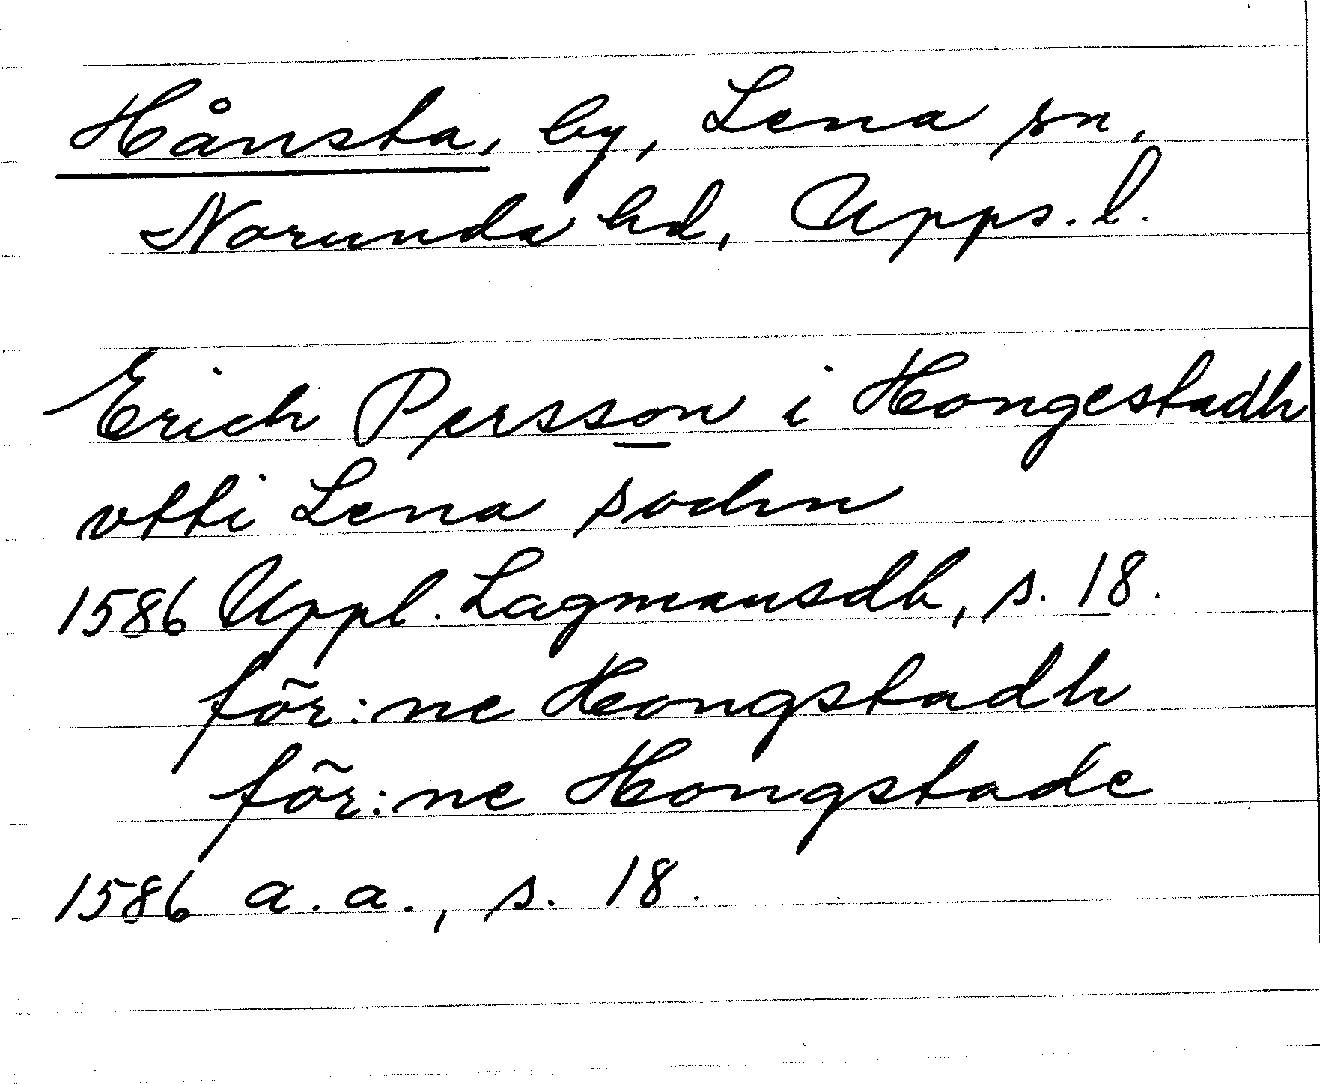 Hånsta, by, Lena sn,
Norunda hd, Upps. l.
Erich Persson i Hongestadh
vtti Lena sochn
1586 Uppl. Lagmansdb, s. 18.
för:ne Hongstadh
för:ne Hongstade
1586 a. a., s. 18.